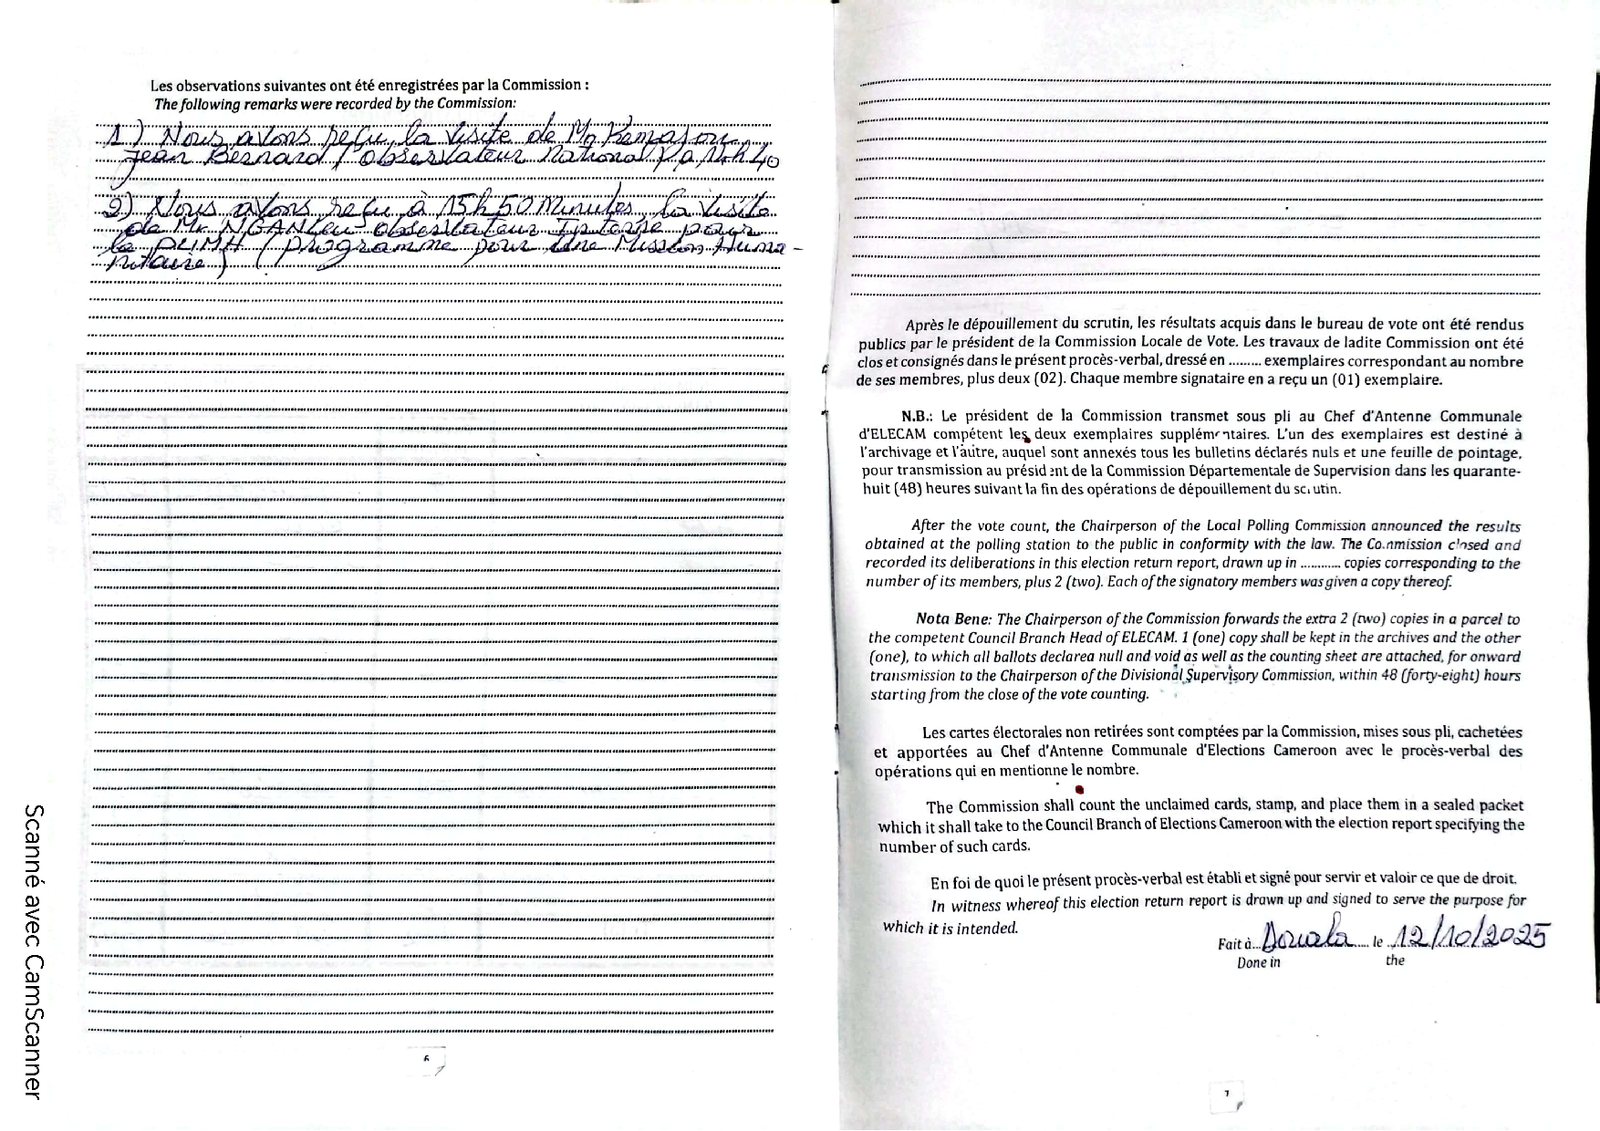 Les observations suivantes ont été enregistrées par la Commission :
The following remarks were recorded by the Commission:
1) Nous avons reçu la visite de Mr
Jean Bernard / observateur National / à
2) Nous avons reçu à 15h 50 Minutes la visite
de Mr. observateur Interne pour
le PUMH (programme pour Une Mission Huma-
nitaire)
6
Après le dépouillement du scrutin, les résultats acquis dans le bureau de vote ont été rendus
publics par le président de la Commission Locale de Vote. Les travaux de ladite Commission ont été
clos et consignés dans le présent procès-verbal, dressé en ......... exemplaires correspondant au nombre
de ses membres, plus deux (02). Chaque membre signataire en a reçu un (01) exemplaire.
N.B.: Le président de la Commission transmet sous pli au Chef d'Antenne Communale
d'ELECAM compétent les deux exemplaires supplémentaires. L'un des exemplaires est destiné à
l'archivage et l'autre, auquel sont annexés tous les bulletins déclarés nuls et une feuille de pointage,
pour transmission au président de la Commission Départementale de Supervision dans les quarante-
huit (48) heures suivant la fin des opérations de dépouillement du scrutin.
After the vote count, the Chairperson of the Local Polling Commission announced the results
obtained at the polling station to the public in conformity with the law. The Commission closed and
recorded its deliberations in this election return report, drawn up in ........... copies corresponding to the
number of its members, plus 2 (two). Each of the signatory members was given a copy thereof.
Nota Bene: The Chairperson of the Commission forwards the extra 2 (two) copies in a parcel to
the competent Council Branch Head of ELECAM. 1 (one) copy shall be kept in the archives and the other
(one), to which all ballots declared null and void as well as the counting sheet are attached, for onward
transmission to the Chairperson of the Divisional Supervisory Commission, within 48 (forty-eight) hours
starting from the close of the vote counting.
Les cartes électorales non retirées sont comptées par la Commission, mises sous pli, cachetées
et apportées au Chef d'Antenne Communale d'Elections Cameroon avec le procès-verbal des
opérations qui en mentionne le nombre.
The Commission shall count the unclaimed cards, stamp, and place them in a sealed packet
which it shall take to the Council Branch of Elections Cameroon with the election report specifying the
number of such cards.
En foi de quoi le présent procès-verbal est établi et signé pour servir et valoir ce que de droit.
In witness whereof this election return report is drawn up and signed to serve the purpose for
which it is intended.
Fait à Douala le 12/10/2025
Done in the
7
Scanné avec CamScanner